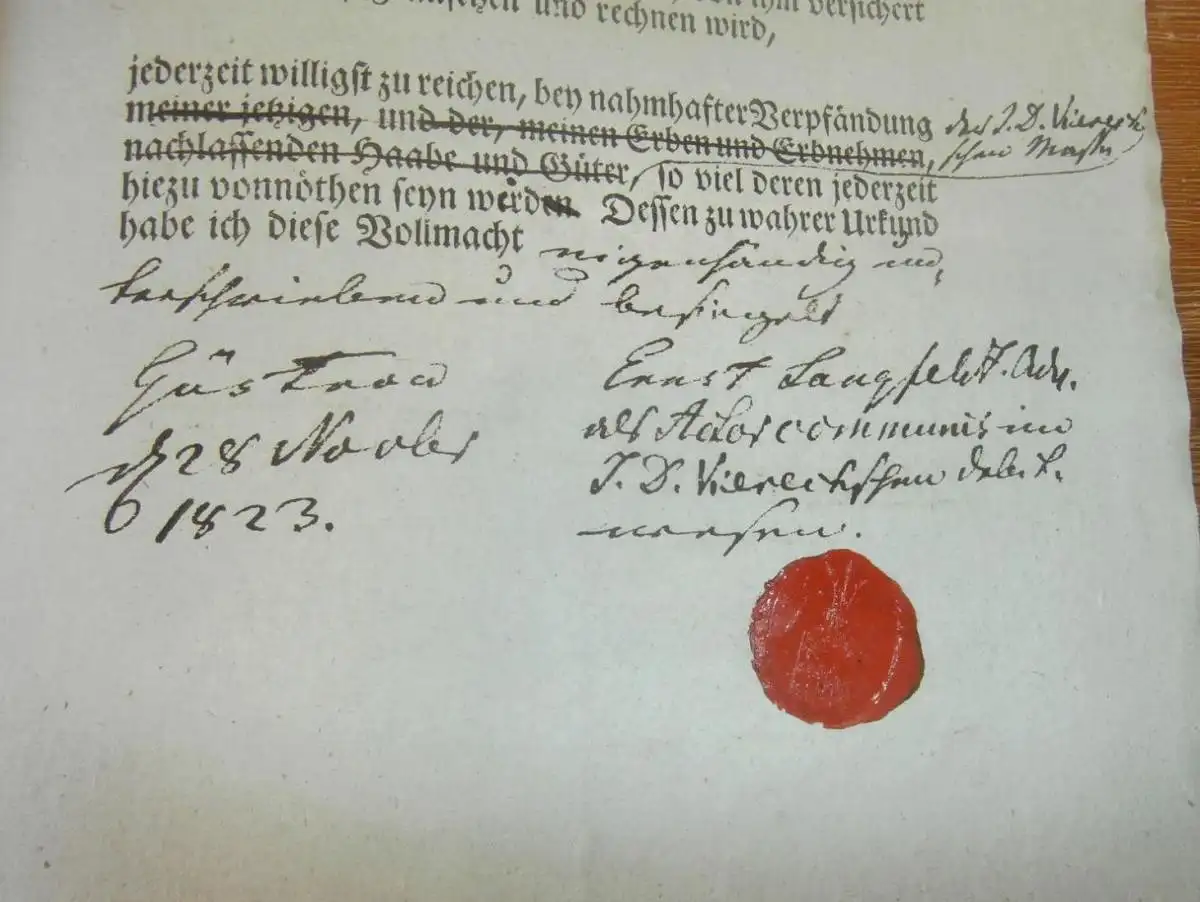 ansehen und rechnen wird, von ihm versichert
jederzeit willigst zu reichen, bey nahmhafter Verpfändung der J. D. Viereck
meiner jetzigen, und der, meinen Erben und Erbnehmen, schen Masse
nachlassenden Haabe und Güter, so viel deren jederzeit
hiezu vonnöthen seyn werden. Dessen zu wahrer Urkund
habe ich diese Vollmacht eigenhändig un-
terschrieben und besiegelt
Güstrow Ernst Langfeldt. Adv.
d 28 Novbr als Actor communis im
1823. J. D. Viereckschen Debit-
wesen.